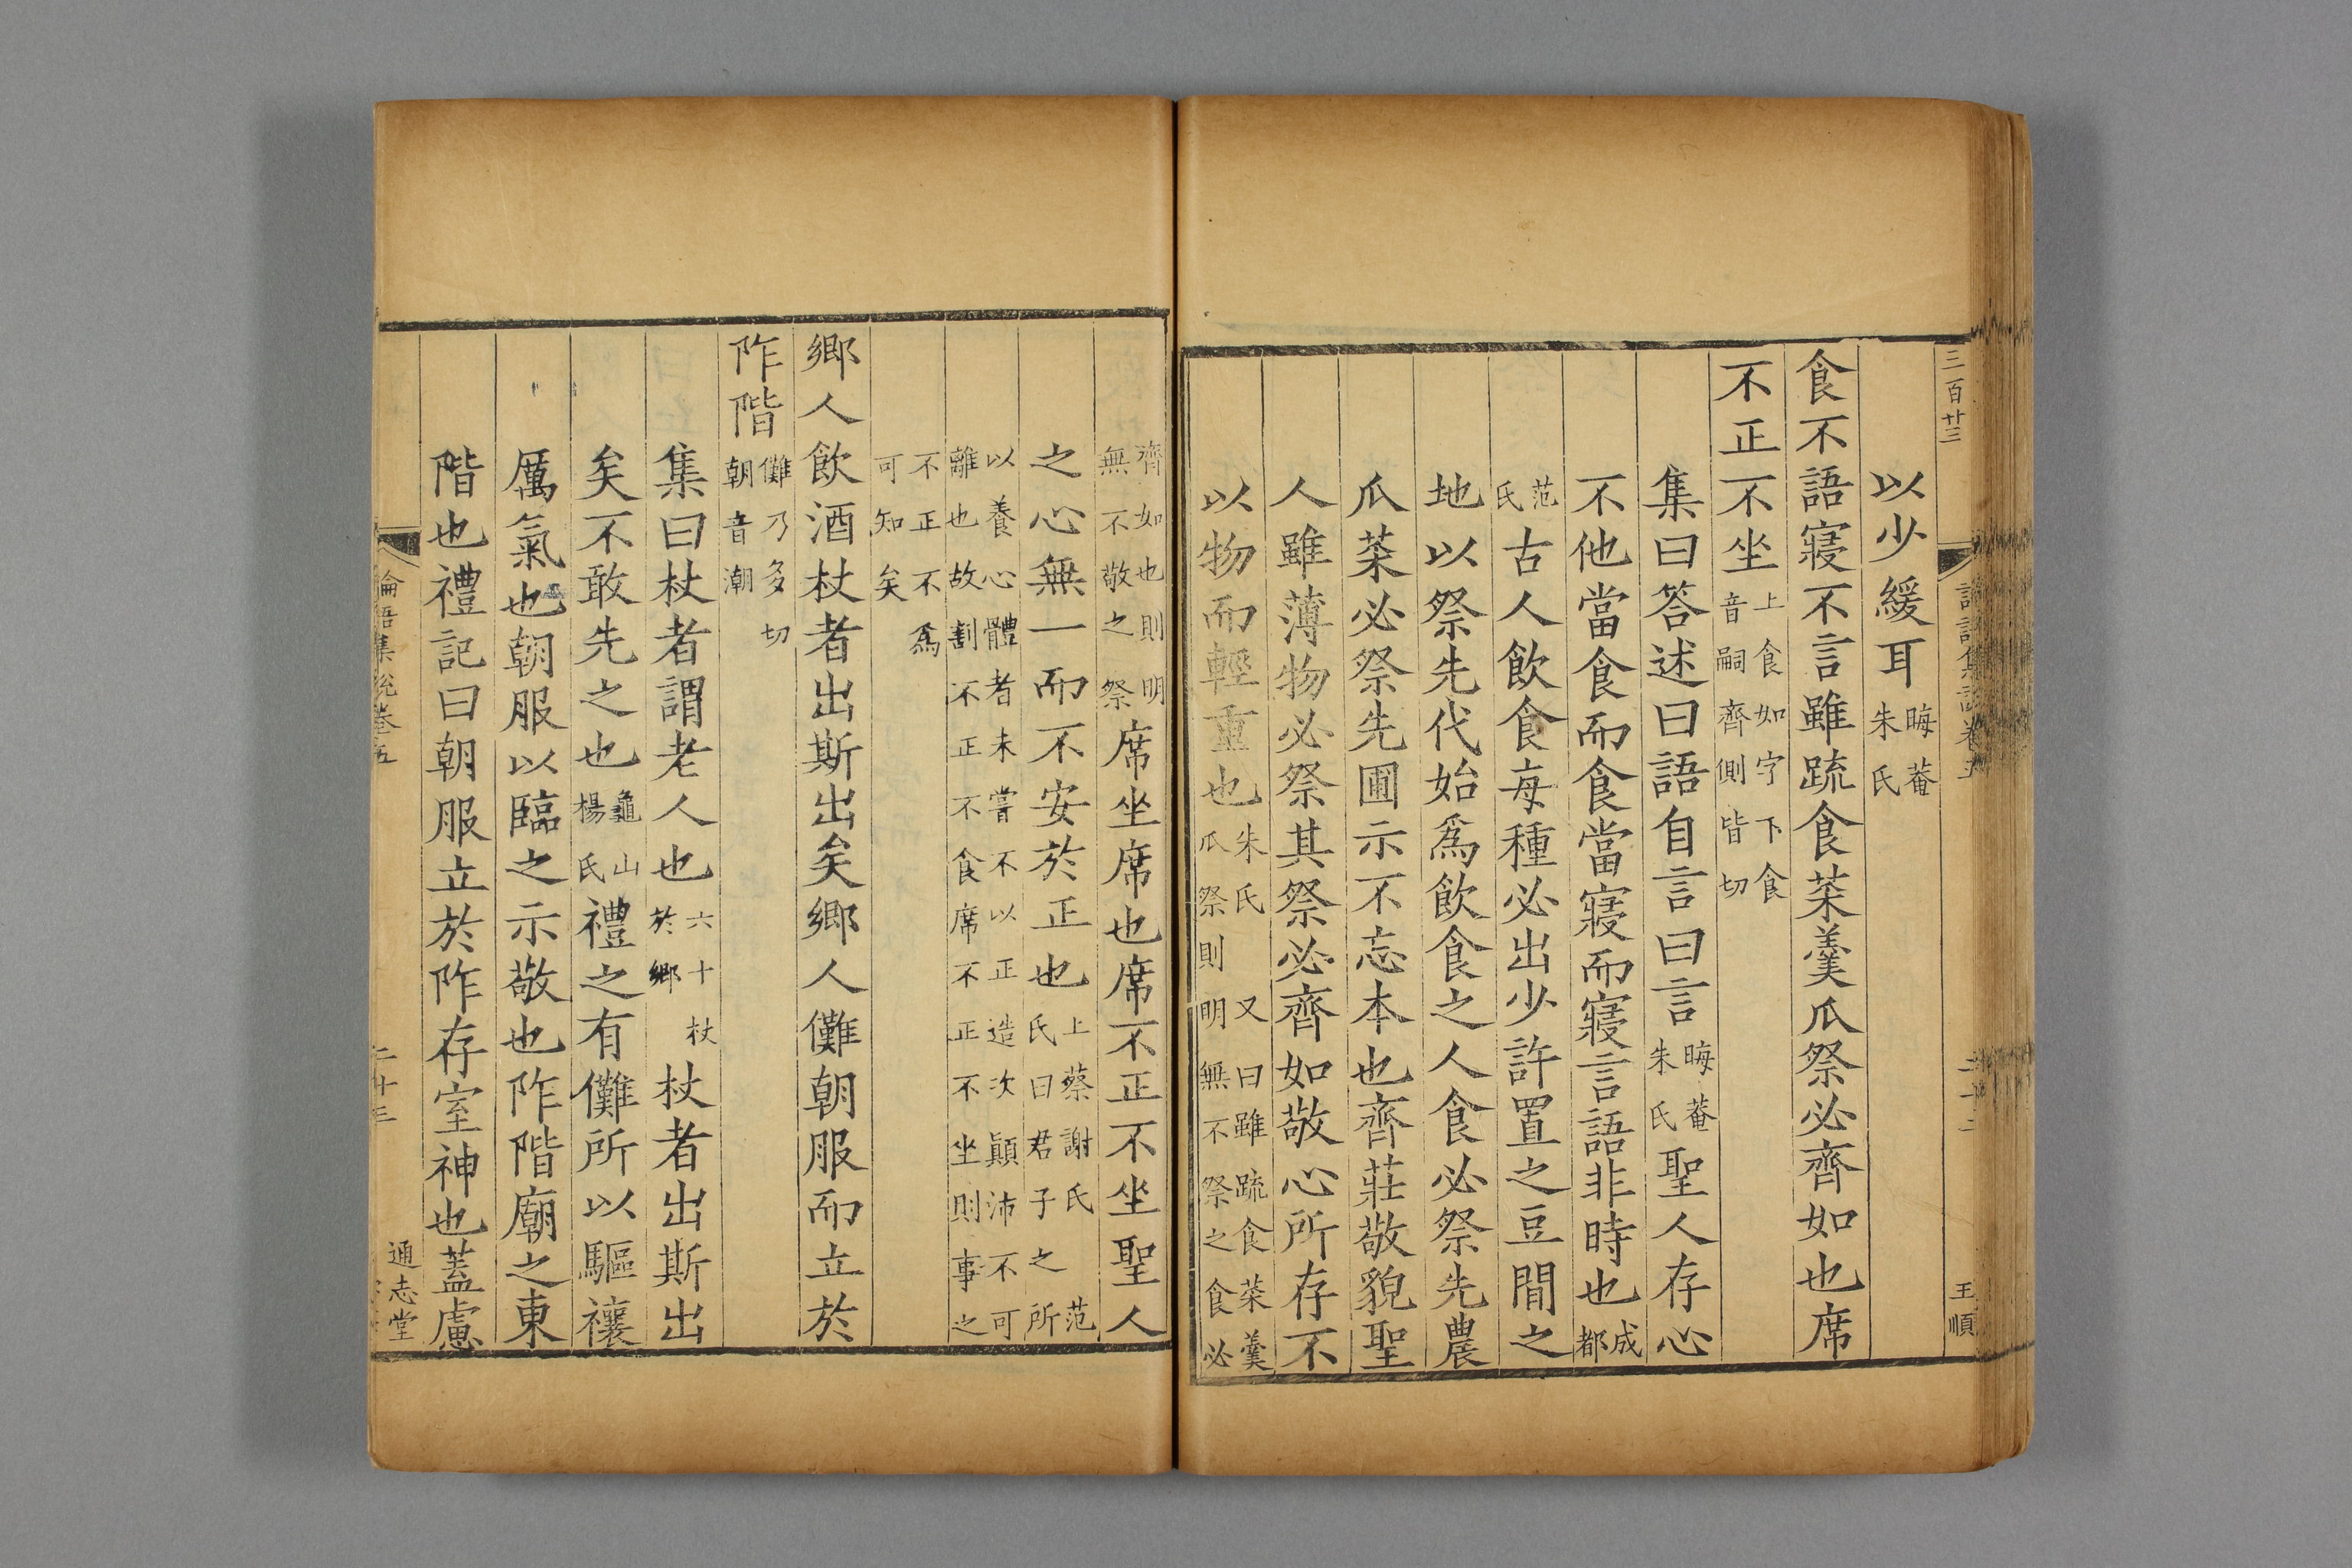 三百廿三
王順
以少緩耳晦菴朱氏
食不語寢不言雖疏食菜羹瓜祭必齊如也席
不正不坐上食如字下食音嗣齊側皆切
集曰答述曰語自言曰言晦菴朱氏聖人存心
不他當食而食當寢而寢言語非時也成都
范氏古人飲食每種必出少許置之豆間之
地以祭先代始爲飲食之人食必祭先農
瓜菜必祭先圃示不忘本也齊莊敬貌聖
人雖薄物必祭其祭必齊如敬心所存不
以物而輕重也朱氏又曰雖疏食菜羹瓜祭則明無不祭之食必
齊如也則明無不敬之祭席坐席也席不正不坐聖人
之心無一而不安於正也上蔡謝氏范氏曰君子之所
以養心體者未嘗不以正造次顚沛不可離也故割不正不食席不正不坐則事之
不正不爲可知矣
鄉人飲酒杖者出斯出矣鄉人儺朝服而立於
阼階儺乃多切朝音潮
集曰杖者謂老人也六十杖於鄉杖者出斯出
矣不敢先之也龜山楊氏禮之有儺所以驅禳
厲氣也朝服以臨之示敬也阼階廟之東
階也禮記曰朝服立於阼存室神也蓋慮
論語集說卷五
二十三
通志堂